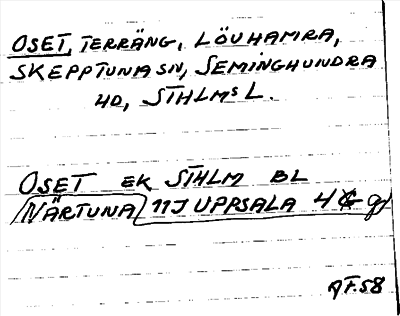 OSET, TERRÄNG, LÖVHAMRA,
SKEPPTUNA SN, SEMINGHUNDRA
HD, STHLMS L.
OSET EK STHLM BL
NÄRTUNA 11J UPPSALA 4 g
AF.58